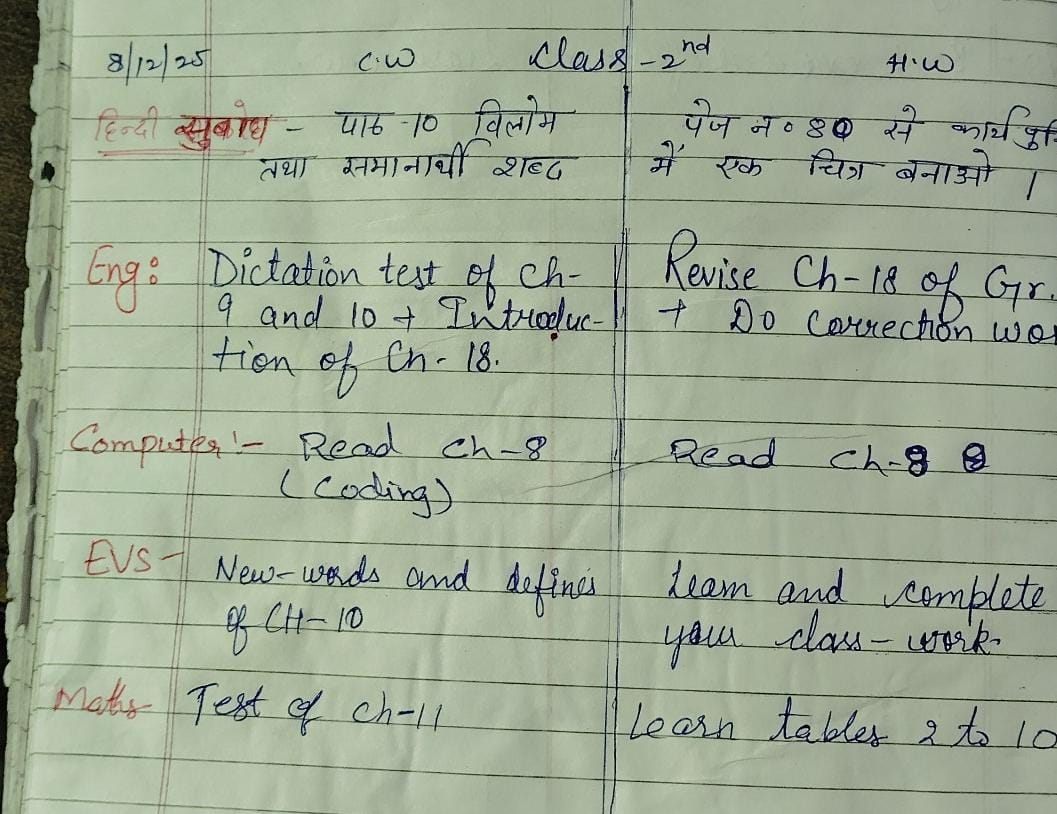 8/12/25 C.W Class-2nd H.W
हिन्दी सुबोध - पाठ-10 विलोम पेज न० 80 से कार्य
तथा समानार्थी शब्द में एक चित्र बनाओ ।
Eng: Dictation test of ch- Revise Ch-18 of Gr.
9 and 10 + Introduc- + Do correction
tion of Ch-18.
Computer:- Read Ch-8 Read Ch-8 8
(Coding)
EVS- New-words and defines Learn and complete
of CH-10 your class-work
Maths Test of ch-11 Learn tables 2 to 10